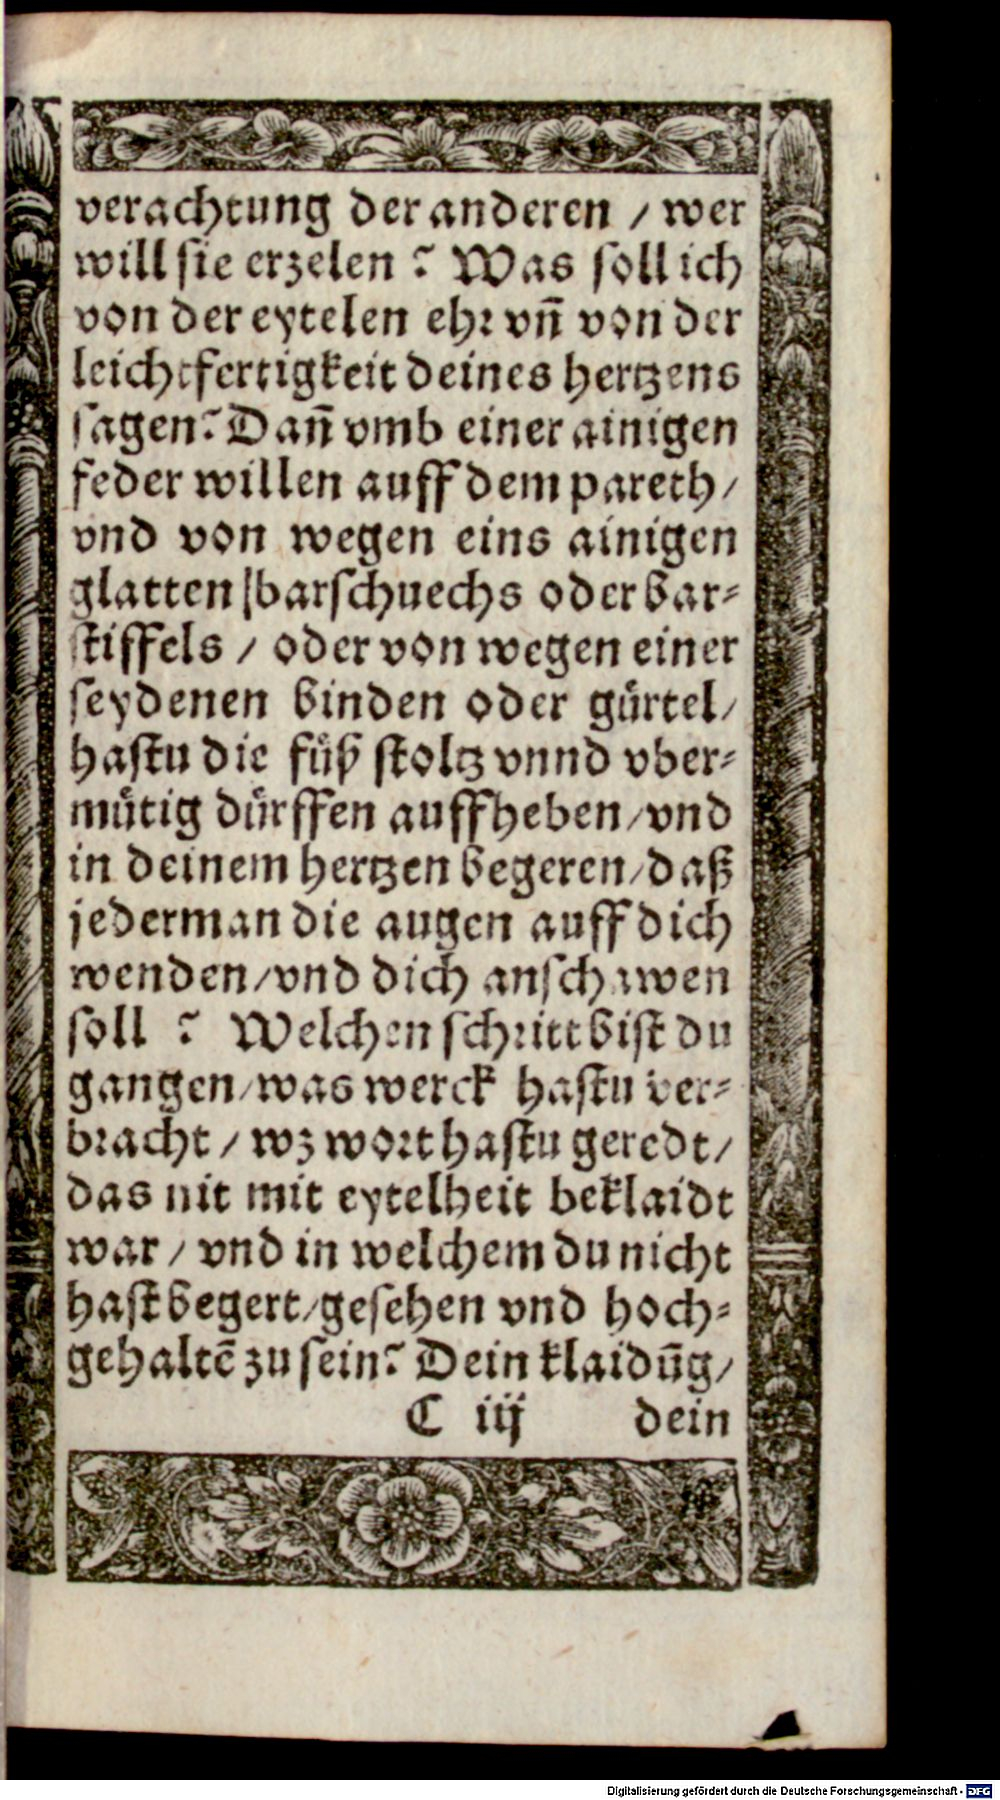 verachtung der anderen / wer
will sie erzelen? Was soll ich
von der eytelen ehr vñ von der
leichtfertigkeit deines hertzens
sagen? Dañ vmb einer ainigen
feder willen auff dem pareth/
vnd von wegen eins ainigen
glatten barschuechs oder bar⸗
stiffels / oder von wegen einer
seydenen binden oder gürtel/
hastu die füß stoltz vnnd vber⸗
mütig dürffen auffheben/vnd
in deinem hertzen begeren/daß
jederman die augen auff dich
wenden/vnd dich anschawen
soll ? Welchen schritt bist du
gangen/was werck hastu ver⸗
bracht / wz wort hastu geredt/
das nit mit eytelheit beklaidt
war / vnd in welchem du nicht
hast begert/gesehen vnd hoch⸗
gehaltē zu sein? Dein klaidūg/
C iij dein
Digitalisierung gefördert durch die Deutsche Forschungsgemeinschaft - DFG